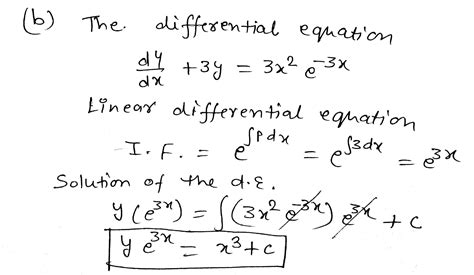 (b) The differential equation
dy/dx + 3y = 3x² e^-3x
Linear differential equation
I.F. = e^∫Pdx = e^∫3dx = e^3x
Solution of the d.E.
y(e^3x) = ∫(3x² e^-3x) e^3x + c
y e^3x = x³+c